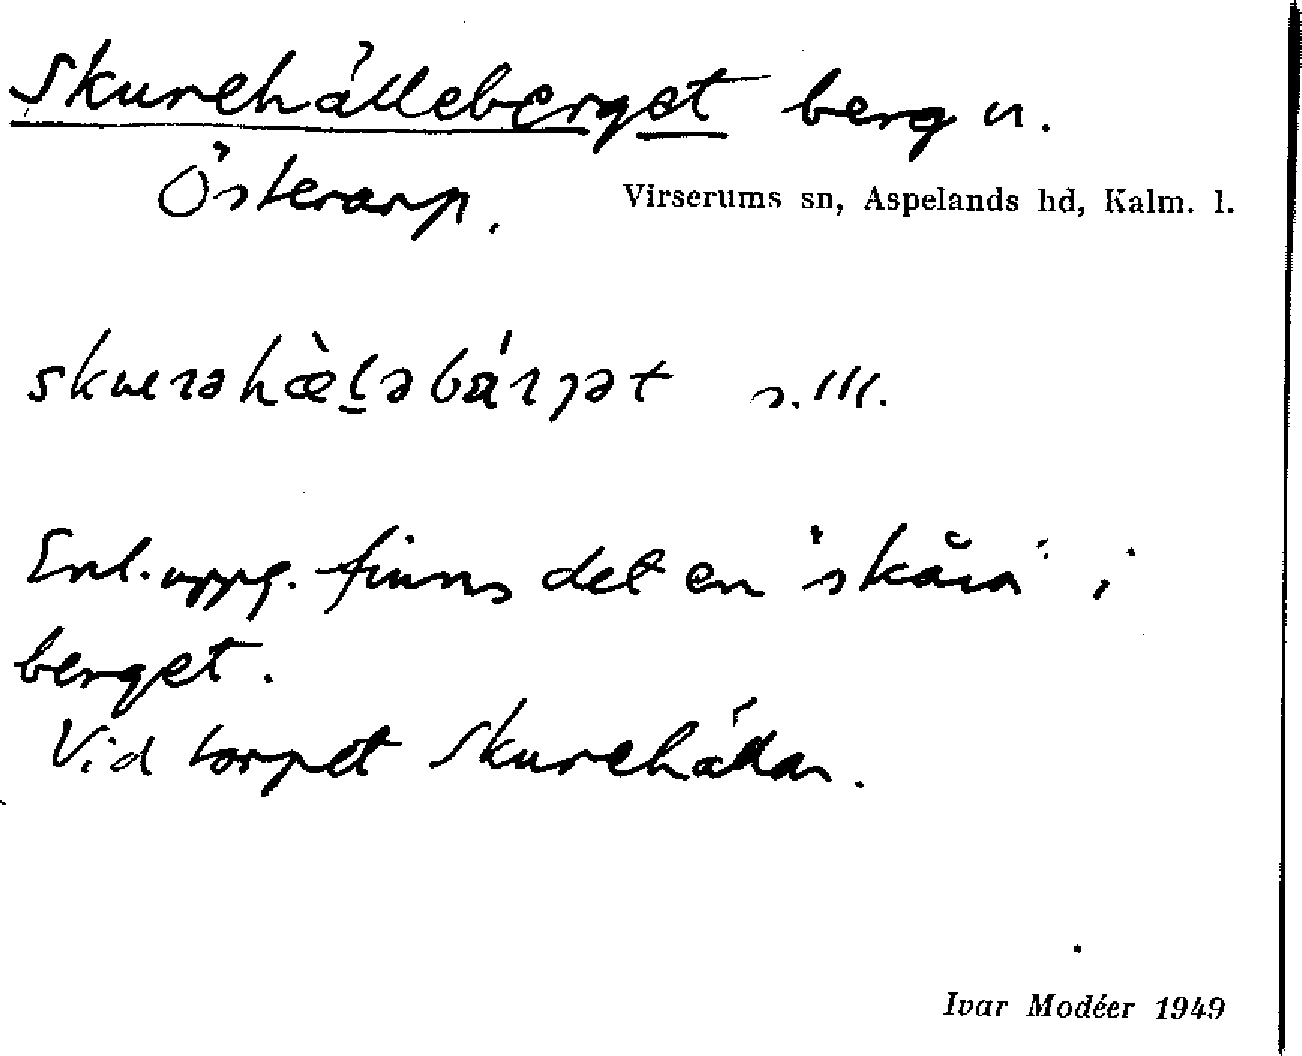 Skurehälleberget berg u.
Österarp.
Virserums sn, Aspelands hd, Kalm. l.
s. III.
Enl. uppg. finns det en "skåra" i
berget.
Vid torpet Skurehällan.
Ivar Modéer 1949